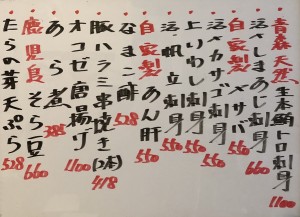 青森天然生本鮪トロ刺身 1100
活〆しまあじ刺身 660
自家製〆サバ 550
活メカサゴ刺身 550
上りわし刺身 550
活帆立刺身 550
自家製あん肝 550
なまこ酢 528
豚ハラミ串焼き(2本) 418
オコゼ唐揚げ 1100
鹿児島そら豆 660
たらの芽天ぷら 528